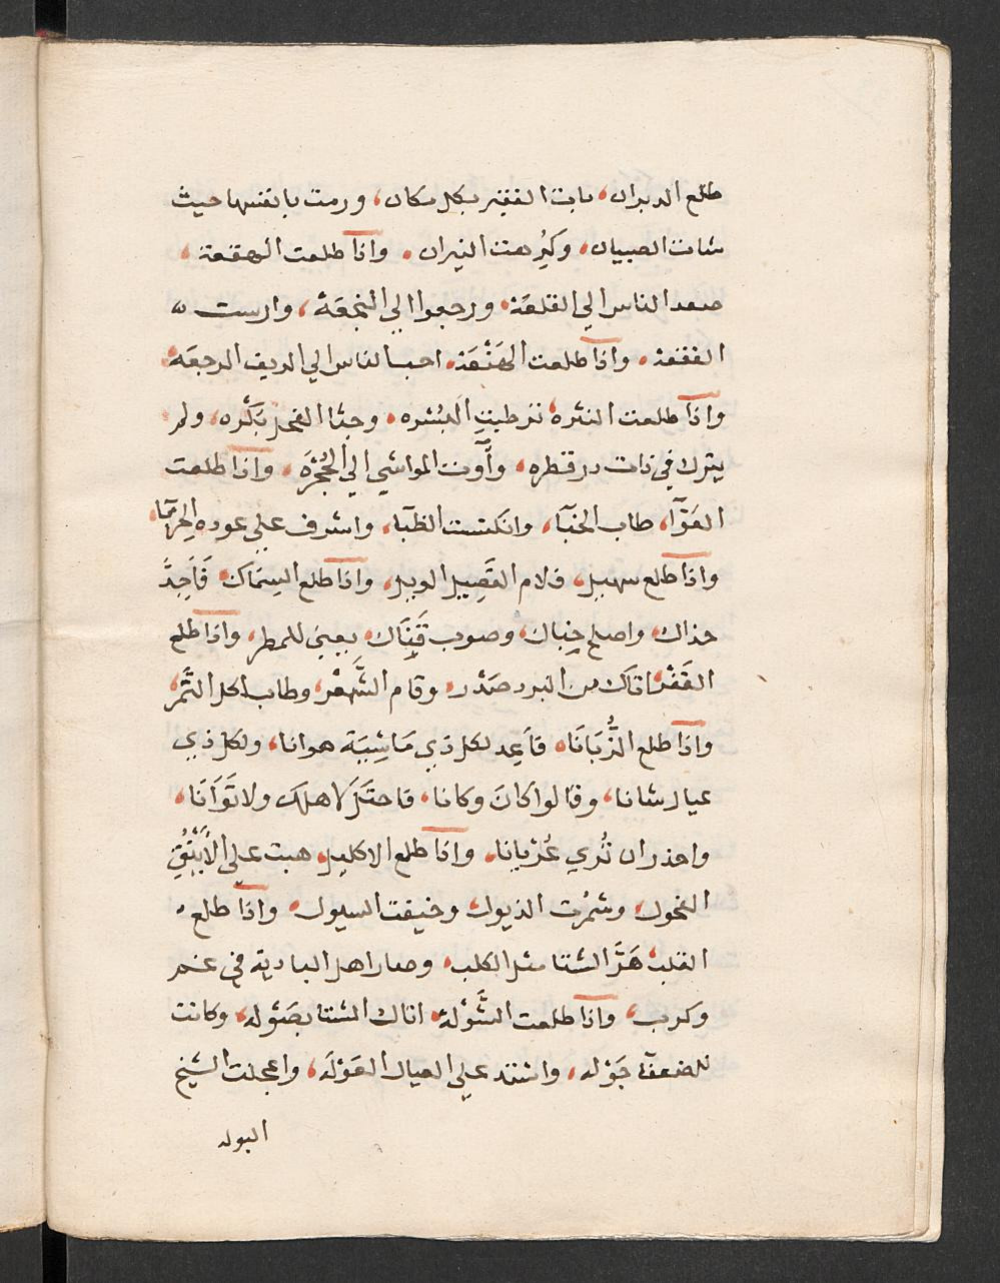 طلع الدبران، بات الفقير بكل مكان، ورمت بانفسها حيث
شات الصبيان، وكُرِهت النيران. واذا طلعت الهقعة،
صعد الناس الي القلعَة. ورجعوا الي النجعَة، وارست
الفقعة. واذا طلعت الهَنْعَة. احب الناس الي الريف الرجعَة.
واذا طلعت النثره، ترطبتِ البُسْره. وجثا النخل بَكْره، ولم
يترك في ذات در قطره، وأَوت المواشي الي الحُجْرَة، واذا طلعت
العَوّآ، طاب الخبآ، وانكنست الظبآ، واشرف علي عوده الحربآ،
واذا طلع سهيل، فلام الفَصِيل الويل، واذا طلع السِمَاك، فَأَجِدَّ
حذاك، واصلح خِبَاك، وصوب قَِنَاك، يعني للمطر، واذا طلع
الغَفْر، اتاك من البرد صَدْر، وقام الشَّهْر، وطاب اكل التَّمْر،
واذا طلع الزُّبَانَا، فَأَعِد لكل ذي مَاشِيَة هوانا، ولكل ذي
عيال شانا، وقالوا كانَ وكانا، فاحتَلْ لاهلك ولا تَوَانَا،
واحذر ان تُري عُرْيانا، واذا طلع الاكليل، هبت علي الأَيْنُقِ
الفحول، وشمرُت الذيول، وخيفت السيول، واذا طلع
القلب، هَرَّ الشتا مثل الكلب، وصار اهل البادية في غم
وكرب، واذا طلعت الشَّوْلَة، اتاك الشتا بصَوْله، وكانت
للضعفآ جَوْله، واشتد علي العيال العَوْلَه، واعجلت الشيخ
البوله